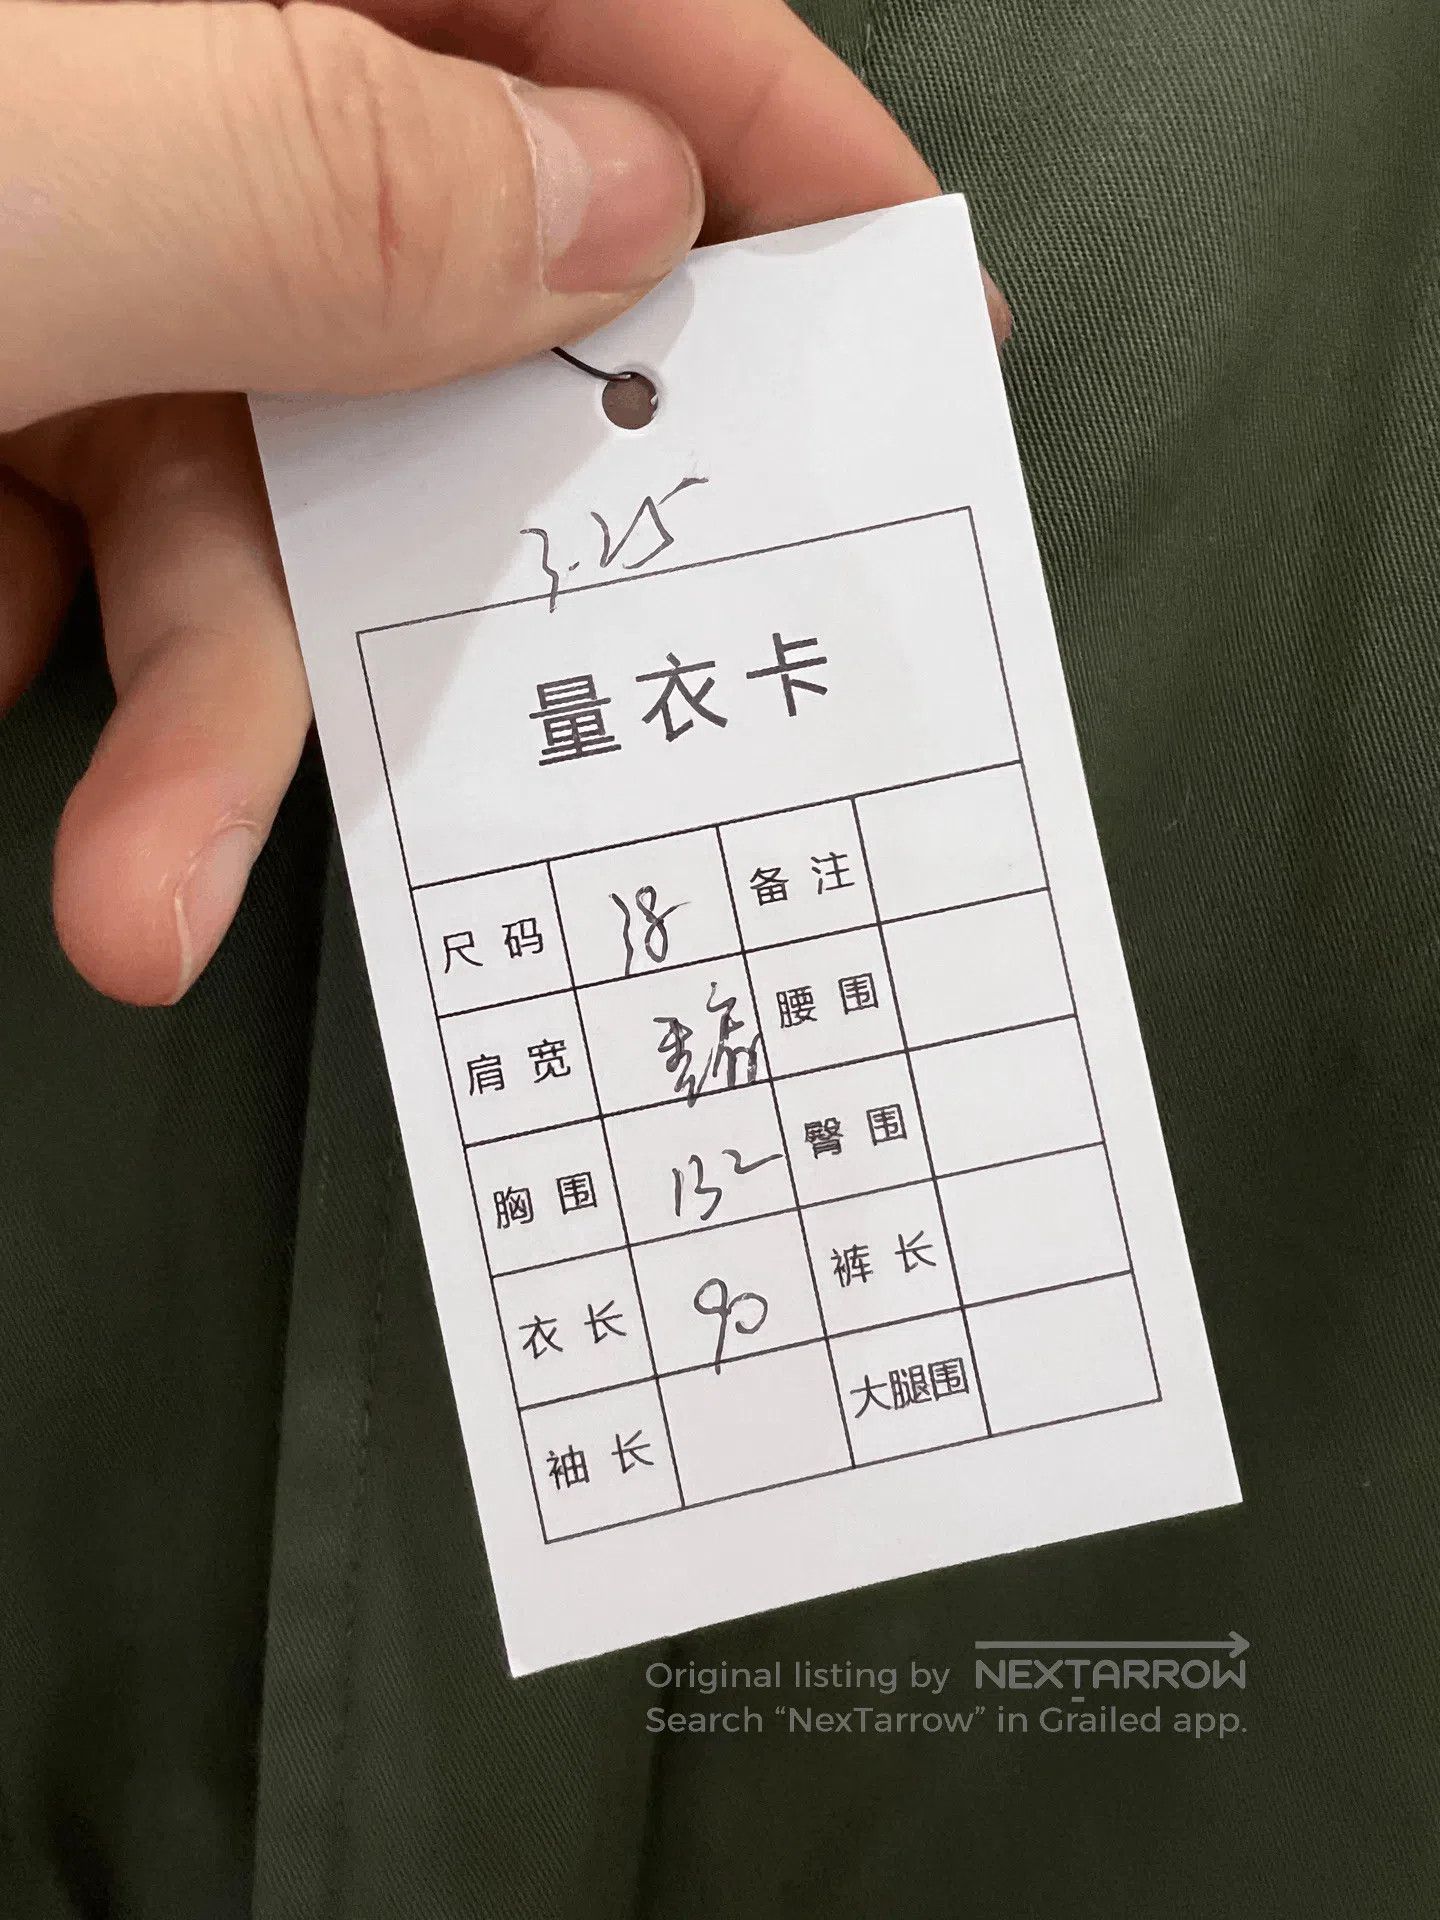 3.25
量衣卡
尺码 38 备注
肩宽 腰围
胸围 132 臀围
衣长 90 裤长
袖长 大腿围
Original listing by NEXTARROW
Search “NexTarrow” in Grailed app.